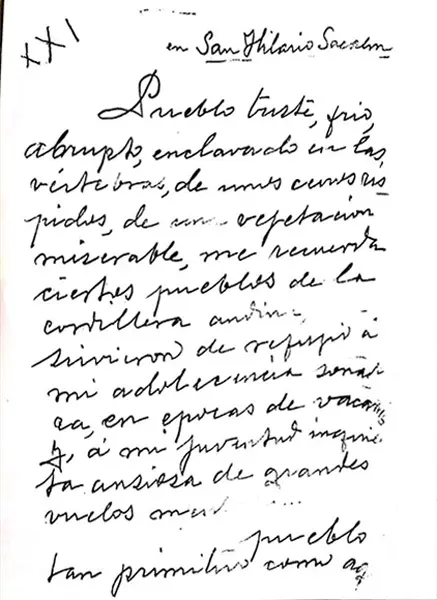 XXI
en San Hilario Sacalm
Pueblo triste, frio,
abrupto, enclavado en las
vertebras, de unos cerros rís
pidos, de una vegetacion
miserable, me recuerda
ciertos pueblos de la
cordillera andin
sirvieron de refugio á
mi adolecencia soñad
ra, en epocas de vacan
y, á mi juventud inquie
ta ansiosa de grandes
vuelos
pueblo
tan primitivo como aq